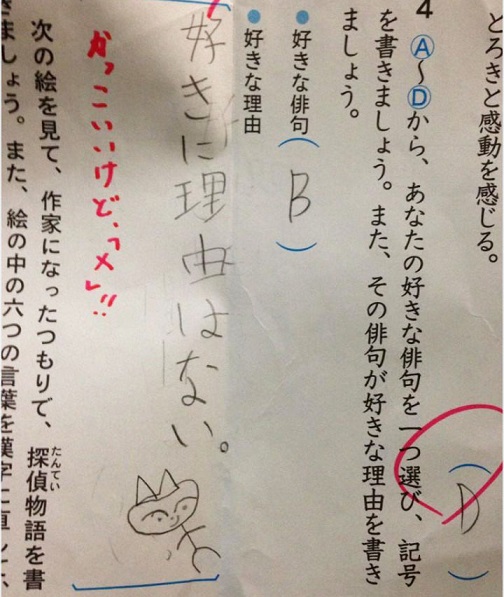 とろきと感動を感じる。
(D)
4 Ⓐ〜Ⓓから、あなたの好きな俳句を一つ選び、記号
を書きましょう。また、その俳句が好きな理由を書き
ましょう。
●好きな俳句(B)
●好きな理由
好きに理由はない。
かっこいいけど、「メ」!!
次の絵を見て、作家になったつもりで、探偵物語を書
たんてい
きましょう。また、絵の中の六つの言葉を漢字に直し、